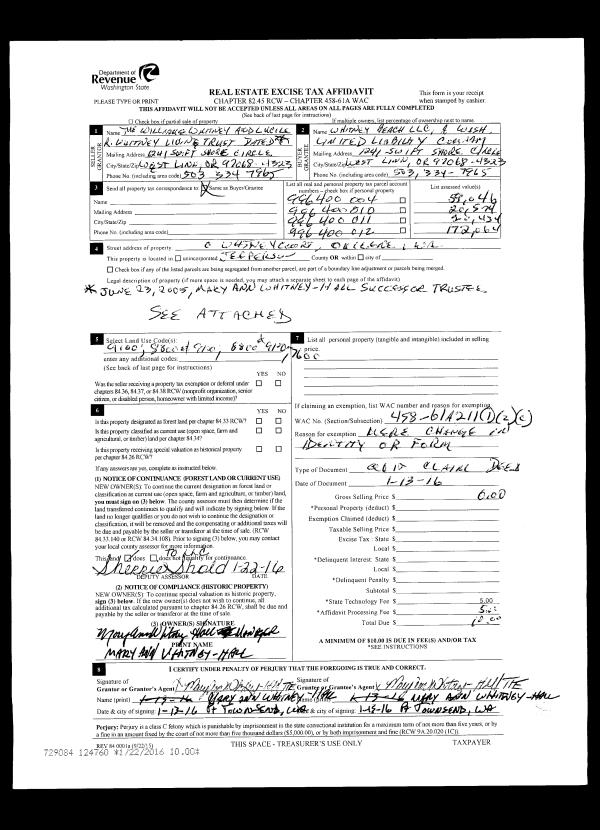 Department of
Revenue
Washington State
REAL ESTATE EXCISE TAX AFFIDAVIT
This form is your receipt
PLEASE TYPE OR PRINT
CHAPTER 82.45 RCW – CHAPTER 458-61A WAC
when stamped by cashier.
THIS AFFIDAVIT WILL NOT BE ACCEPTED UNLESS ALL AREAS ON ALL PAGES ARE FULLY COMPLETED
(See back of last page for instructions)
Check box if partial sale of property
If multiple owners, list percentage of ownership next to name.
1 Name THE WILLIAM WHITNEY AND LUCILLE
R. WHITNEY LIVING TRUST DATED *
SELLER GRANTOR
Mailing Address 1241 SWIFT SHORE CIRCLE
City/State/Zip WEST LINN, OR 97068-4323
Phone No. (including area code) 503 334 7865
2 Name WHITNEY BEACH LLC, A WASH.
LIMITED LIABILITY COMPANY
BUYER GRANTEE
Mailing Address 1241 SWIFT SHORE CIRCLE
City/State/Zip WEST LINN, OR 97068-4323
Phone No. (including area code) 503, 334-7865
3 Send all property tax correspondence to: Same as Buyer/Grantee
Name
Mailing Address
City/State/Zip
Phone No. (including area code)
List all real and personal property tax parcel account
numbers – check box if personal property
List assessed value(s)
996400 004
996 400 010
996 400 011
996 400 012
172,064
4 Street address of property 0 WHITNEY COURT,
This property is located in unincorporated JEFFERSON County OR within city of
Check box if any of the listed parcels are being segregated from another parcel, are part of a boundary line adjustment or parcels being merged.
Legal description of property (if more space is needed, you may attach a separate sheet to each page of the affidavit)
* JUNE 23, 2005, MARY ANN WHITNEY-HALL SUCCESSOR TRUSTEE
SEE ATTACHED
5 Select Land Use Code(s):
enter any additional codes:
(See back of last page for instructions)
YES NO
Was the seller receiving a property tax exemption or deferral under
chapters 84.36, 84.37, or 84.38 RCW (nonprofit organization, senior
citizen, or disabled person, homeowner with limited income)?
6
YES NO
Is this property designated as forest land per chapter 84.33 RCW?
Is this property classified as current use (open space, farm and
agricultural, or timber) land per chapter 84.34?
Is this property receiving special valuation as historical property
per chapter 84.26 RCW?
If any answers are yes, complete as instructed below.
(1) NOTICE OF CONTINUANCE (FOREST LAND OR CURRENT USE)
NEW OWNER(S): To continue the current designation as forest land or
classification as current use (open space, farm and agriculture, or timber) land,
you must sign on (3) below. The county assessor must then determine if the
land transferred continues to qualify and will indicate by signing below. If the
land no longer qualifies or you do not wish to continue the designation or
classification, it will be removed and the compensating or additional taxes will
be due and payable by the seller or transferor at the time of sale. (RCW
84.33.140 or RCW 84.34.108). Prior to signing (3) below, you may contact
your local county assessor for more information.
TO LLC
This land does does not qualify for continuance.
1-22-16
DEPUTY ASSESSOR DATE
(2) NOTICE OF COMPLIANCE (HISTORIC PROPERTY)
NEW OWNER(S): To continue special valuation as historic property,
sign (3) below. If the new owner(s) does not wish to continue, all
additional tax calculated pursuant to chapter 84.26 RCW, shall be due and
payable by the seller or transferor at the time of sale.
(3) OWNER(S) SIGNATURE
PRINT NAME
MARY ANN WHITNEY-HALL
7 List all personal property (tangible and intangible) included in selling
price.
If claiming an exemption, list WAC number and reason for exemption:
WAC No. (Section/Subsection) 458-61A211(1)(2)(c)
Reason for exemption MERE CHANGE IN
IDENTITY OR FORM
Type of Document QUIT CLAIM DEED
Date of Document 1-13-16
Gross Selling Price $ 0.00
*Personal Property (deduct) $
Exemption Claimed (deduct) $
Taxable Selling Price $
Excise Tax : State $
Local $
*Delinquent Interest: State $
Local $
*Delinquent Penalty $
Subtotal $
*State Technology Fee $ 5.00
*Affidavit Processing Fee $ 5.00
Total Due $ 10.00
A MINIMUM OF $10.00 IS DUE IN FEE(S) AND/OR TAX
*SEE INSTRUCTIONS
8 I CERTIFY UNDER PENALTY OF PERJURY THAT THE FOREGOING IS TRUE AND CORRECT.
Signature of
Grantor or Grantor's Agent
Name (print) MARY ANN WHITNEY-HALL
Date & city of signing: 1-13-16 Pt TOWNSEND, WA
Signature of
Grantee or Grantee's Agent
Name (print) MARY ANN WHITNEY-HALL
Date & city of signing: 1-13-16 Pt TOWNSEND, WA
Perjury: Perjury is a class C felony which is punishable by imprisonment in the state correctional institution for a maximum term of not more than five years, or by
a fine in an amount fixed by the court of not more than five thousand dollars ($5,000.00), or by both imprisonment and fine (RCW 9A.20.020 (1C)).
REV 84 0001a (9/22/15)
THIS SPACE - TREASURER'S USE ONLY
TAXPAYER
729084 124760 *1/22/2016 10.00*